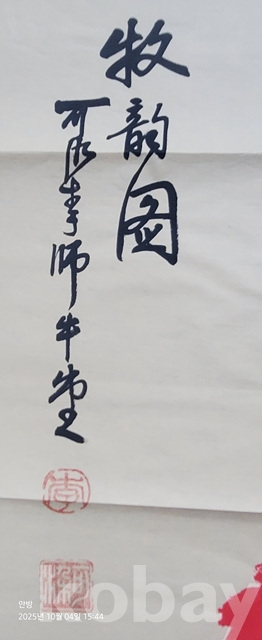 牧韵图
可染于师牛堂
李
안방
2025년 10월 04일 15:44
obay